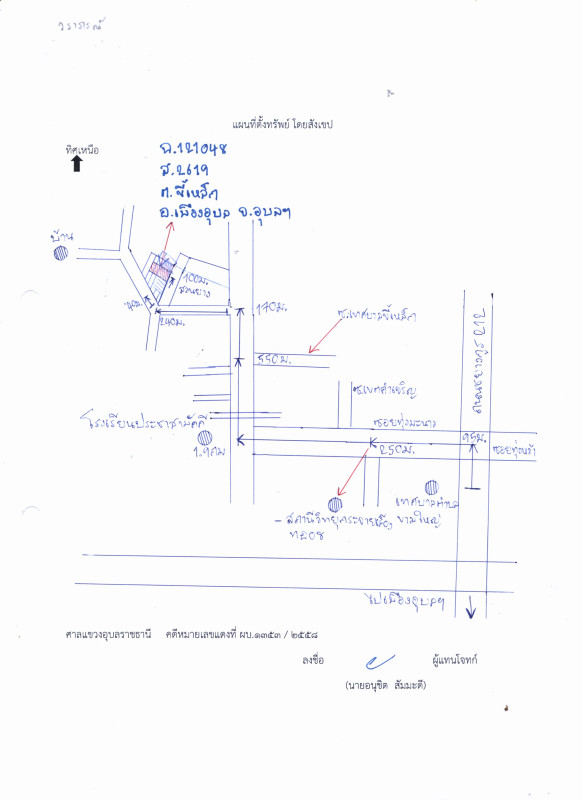 วราภรณ์
แผนที่ตั้งทรัพย์ โดยสังเขป
ทิศเหนือ
ฉ.121048
ส.2619
ต.ขี้เหล็ก
อ.เมืองอุบล จ.อุบลฯ
บ้าน
100ม.
สวนยาง
40ม.
240ม.
170ม.
ซ.เทศบาลขี้เหล็ก
550ม.
ถนนชยางกูร 212
โรงเรียนประชาสามัคคี
1.9กม
ซอยทุ่งมะนาว
95ม.
250ม.
เทศบาลตำบล
ขามใหญ่
- สถานีวิทยุกระจายเสียง
ทอ08
ไปเมืองอุบลฯ
ศาลแขวงอุบลราชธานี คดีหมายเลขแดงที่ ผบ.๑๓๕๓ / ๒๕๕๘
ลงชื่อ ผู้แทนโจทก์
(นายอนุชิต สัมมะดี)